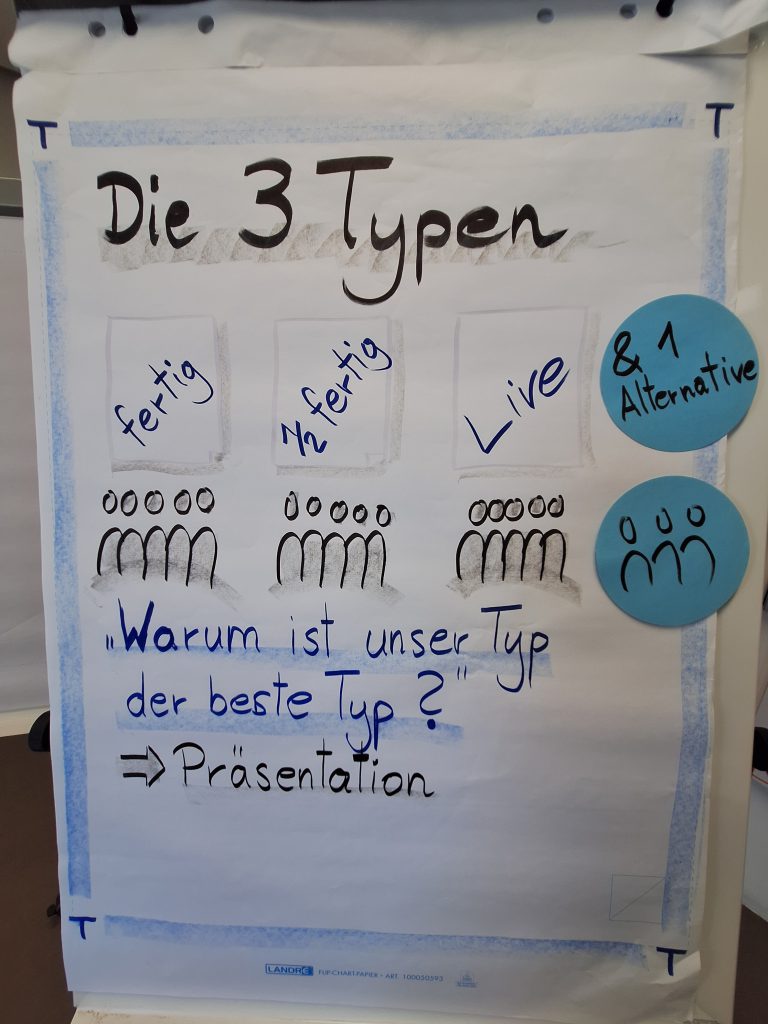 T
T
Die 3 Typen
fertig
1/2 fertig
Live
& 1
Alternative
„Warum ist unser Typ
der beste Typ?"
⇒ Präsentation
T
T
LANDRÉ FLIP-CHART-PAPIER • ART. 100050593